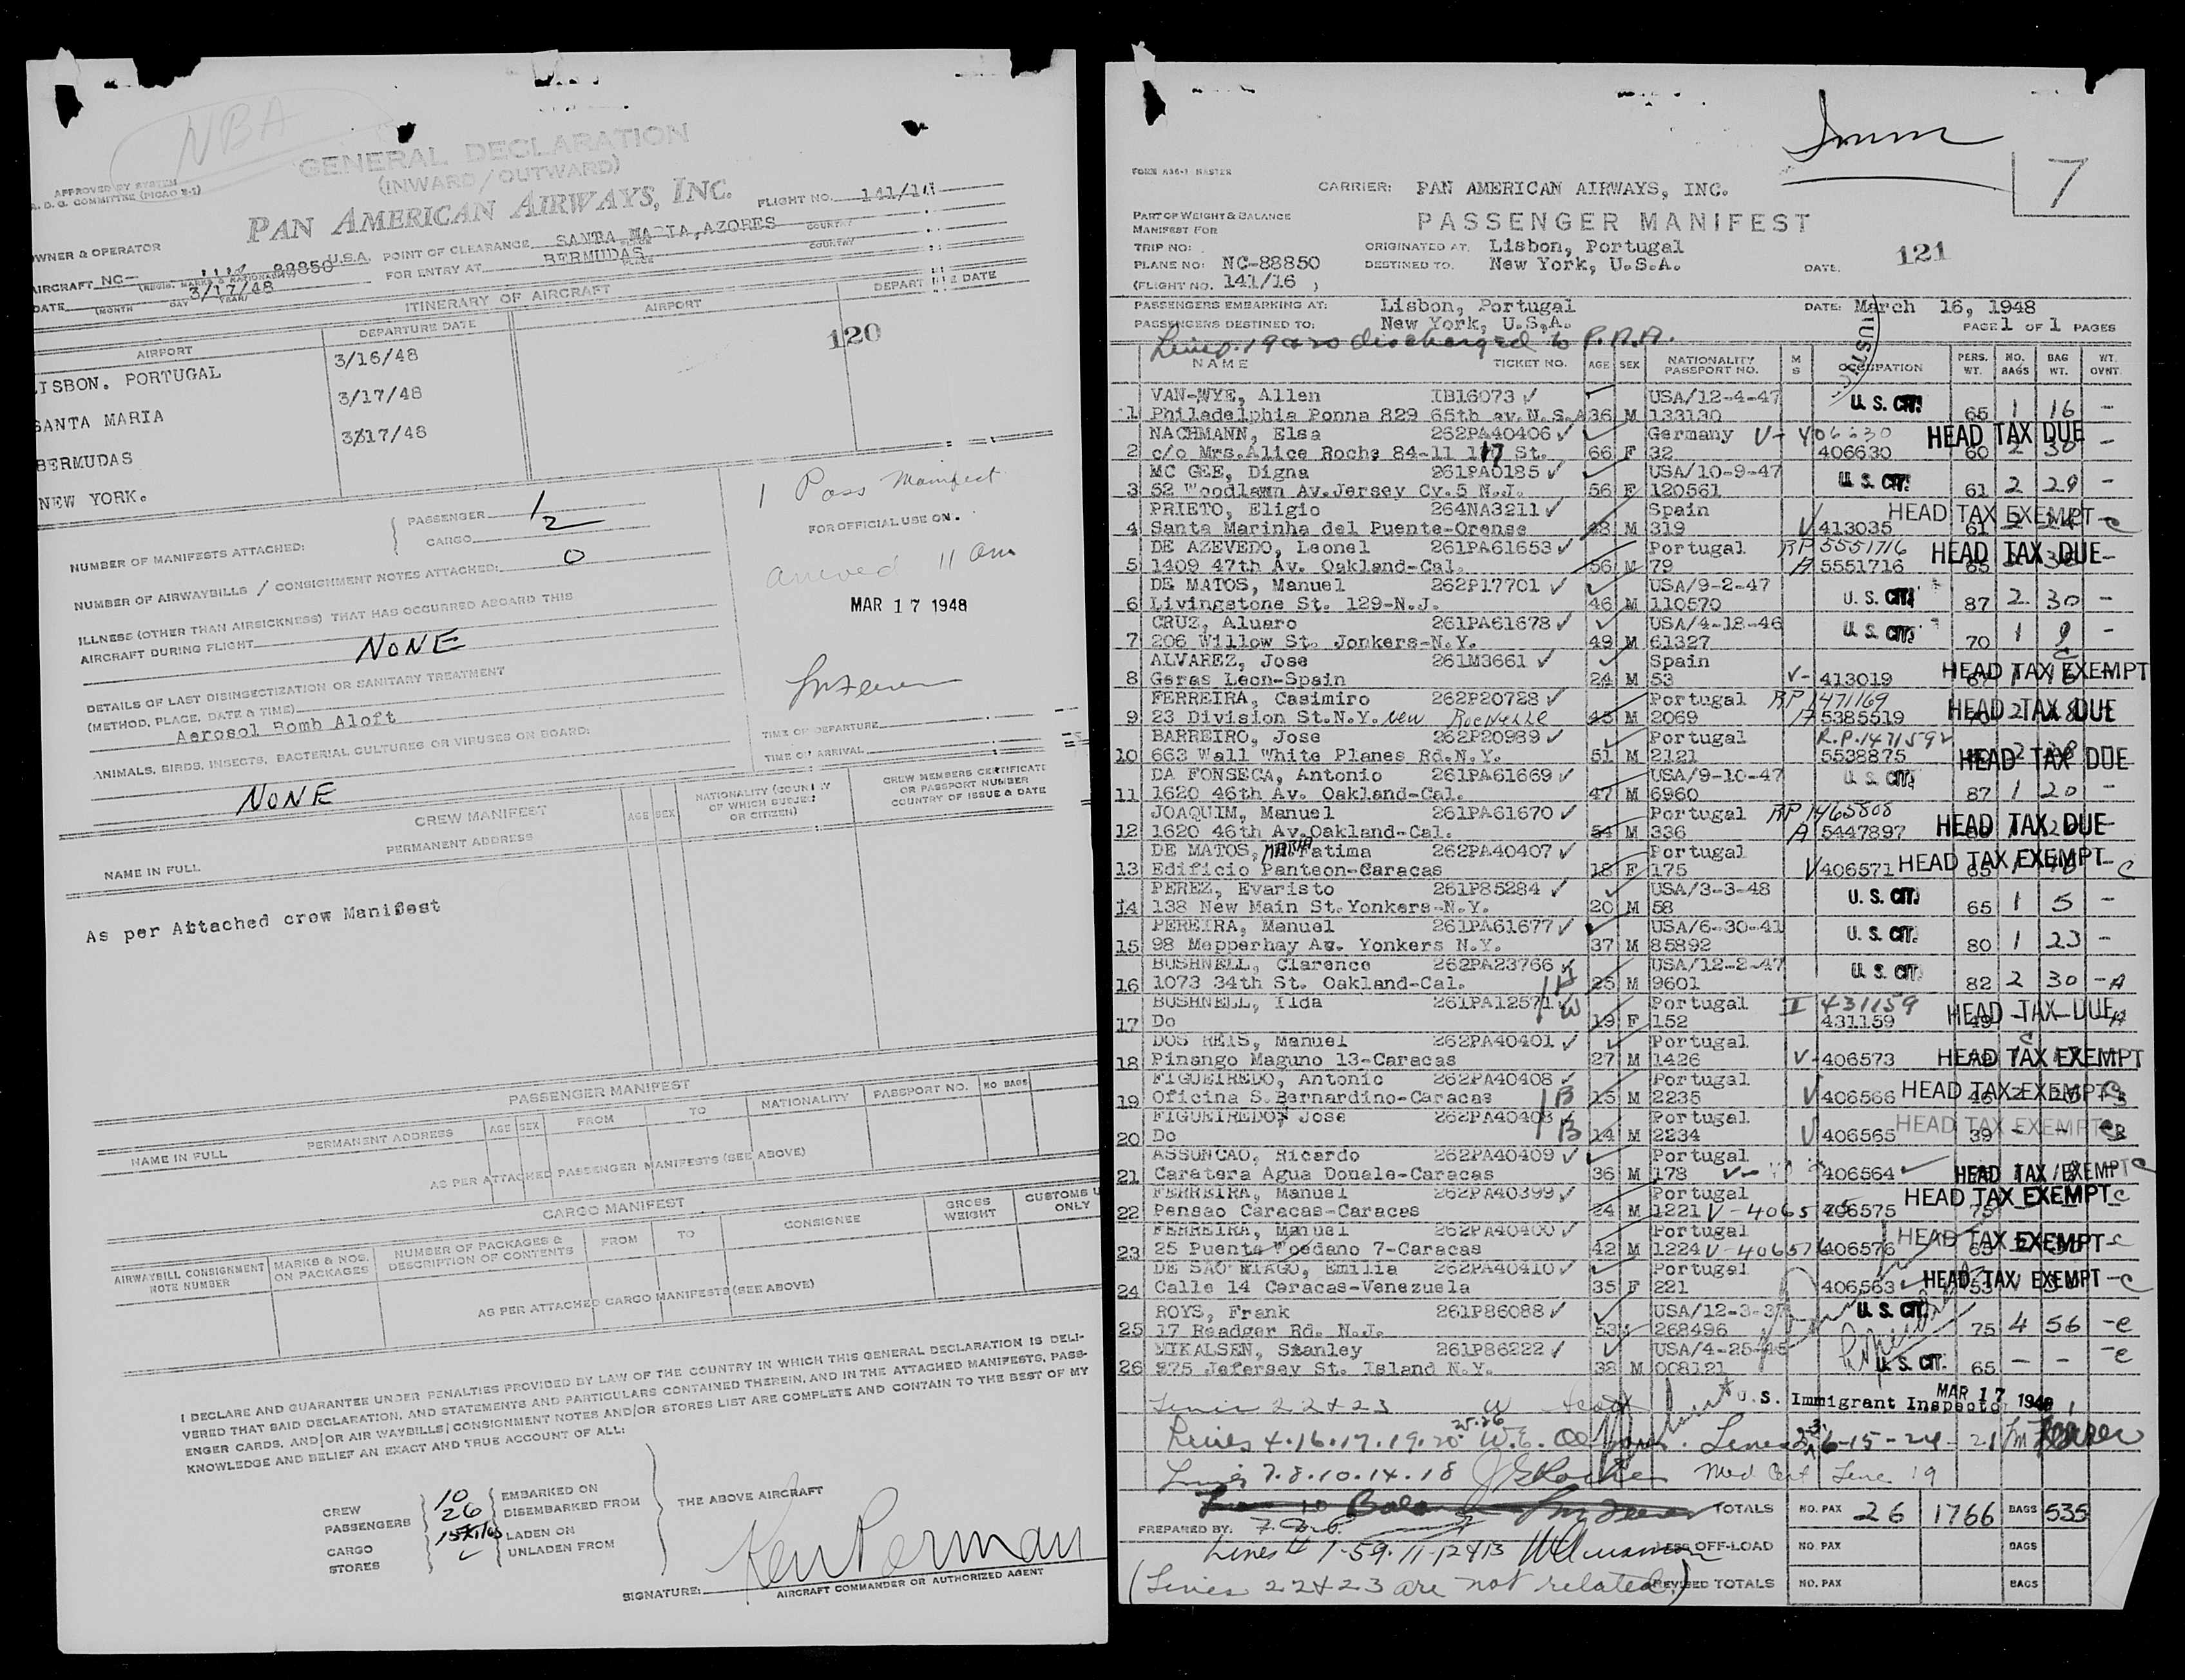 NBA
GENERAL DECLARATION
(INWARD/OUTWARD)
PAN AMERICAN AIRWAYS, INC.
FLIGHT NO.
APPROVED BY SYSTEM
A. D. G. COMMITTEE (PICAO E-1)
OWNER & OPERATOR
AIRCRAFT NC- 88850 U.S.A. POINT OF CLEARANCE SANTA MARIA, AZORES
FOR ENTRY AT BERMUDAS
DATE 3/17/48
ITINERARY OF AIRCRAFT
AIRPORT DEPARTURE DATE AIRPORT DEPARTURE DATE
120
LISBON. PORTUGAL 3/16/48
SANTA MARIA 3/17/48
BERMUDAS 3317/48
NEW YORK.
NUMBER OF MANIFESTS ATTACHED: PASSENGER 1/2
CARGO
1 Pass Manifest
FOR OFFICIAL USE ON.
NUMBER OF AIRWAYBILLS / CONSIGNMENT NOTES ATTACHED: 0
arrived 11 am
MAR 17 1948
ILLNESS (OTHER THAN AIRSICKNESS) THAT HAS OCCURRED ABOARD THIS
AIRCRAFT DURING FLIGHT NONE
DETAILS OF LAST DISINSECTIZATION OR SANITARY TREATMENT
(METHOD, PLACE, DATE & TIME)
Aerosol Bomb Aloft
TIME OF DEPARTURE
TIME OF ARRIVAL
ANIMALS, BIRDS, INSECTS, BACTERIAL CULTURES OR VIRUSES ON BOARD:
NONE
CREW MANIFEST
NAME IN FULL PERMANENT ADDRESS AGE SEX NATIONALITY (COUNTRY OF WHICH SUBJECT OR CITIZEN) CREW MEMBERS CERTIFICATE OR PASSPORT NUMBER COUNTRY OF ISSUE & DATE
As per Attached crew Manifest
PASSENGER MANIFEST
NAME IN FULL PERMANENT ADDRESS AGE SEX FROM TO NATIONALITY PASSPORT NO. NO BAGS
AS PER ATTACHED PASSENGER MANIFESTS (SEE ABOVE)
CARGO MANIFEST
AIRWAYBILL CONSIGNMENT NOTE NUMBER MARKS & NOS. ON PACKAGES NUMBER OF PACKAGES & DESCRIPTION OF CONTENTS FROM TO CONSIGNEE GROSS WEIGHT CUSTOMS U ONLY
AS PER ATTACHED CARGO MANIFESTS (SEE ABOVE)
I DECLARE AND GUARANTEE UNDER PENALTIES PROVIDED BY LAW OF THE COUNTRY IN WHICH THIS GENERAL DECLARATION IS DELI-
VERED THAT SAID DECLARATION, AND STATEMENTS AND PARTICULARS CONTAINED THEREIN, AND IN THE ATTACHED MANIFESTS, PASS-
ENGER CARDS, AND/OR AIR WAYBILLS/CONSIGNMENT NOTES AND/OR STORES LIST ARE COMPLETE AND CONTAIN TO THE BEST OF MY
KNOWLEDGE AND BELIEF AN EXACT AND TRUE ACCOUNT OF ALL:
CREW 10 EMBARKED ON
PASSENGERS 26 DISEMBARKED FROM
CARGO LADEN ON
STORES UNLADEN FROM
THE ABOVE AIRCRAFT
Ken Perman
SIGNATURE: AIRCRAFT COMMANDER OR AUTHORIZED AGENT
Imm
7
FORM A36-1 MASTER
CARRIER: PAN AMERICAN AIRWAYS, INC.
PART OF WEIGHT & BALANCE
MANIFEST FOR
PASSENGER MANIFEST
TRIP NO: ORIGINATED AT: Lisbon, Portugal 121
PLANE NO: NC-88850 DESTINED TO: New York, U.S.A. DATE:
(FLIGHT NO. 141/16 )
PASSENGERS EMBARKING AT: Lisbon, Portugal DATE: March 16, 1948
PASSENGERS DESTINED TO: New York, U.S.A. PAGE 1 OF 1 PAGES
Lines 19 & 20 discharged to P.A.A.
NAME TICKET NO. AGE SEX NATIONALITY PASSPORT NO. M S OCCUPATION PERS. WT. NO. BAGS BAG WT. WT. OVNT.
VAN-WYE, Allen IB16073 USA/12-4-47 U. S. CIT.
1 Philadelphia Ponna 829 65th av.N.S.A 36 M 133130 65 1 16 -
NACHMANN, Elsa 262PA40406 Germany V- 406630 HEAD TAX DUE
2 c/o Mrs.Alice Rochs 84-11 117 St. 66 F 32 406630 60 2 30 -
MC GEE, Digna 261PA0185 USA/10-9-47 U. S. CIT.
3 52 Woodlawn Av.Jersey Cy.5 N.J. 56 F 120561 61 2 29 -
PRIETO, Eligio 264NA3211 Spain HEAD TAX EXEMPT
4 Santa Marinha del Puente-Orense 48 M 319 V 413035 61 - C
DE AZEVEDO, Leonel 261PA61653 Portugal RP 5551716 HEAD TAX DUE
5 1409 47th Av. Oakland-Cal. 56 M 79 A 5551716 65 -
DE MATOS, Manuel 262P17701 USA/9-2-47 U. S. CIT.
6 Livingstone St. 129-N.J. 46 M 110570 87 2 30 -
CRUZ, Aluaro 261PA61678 USA/4-18-46 U. S. CIT.
7 206 Willow St. Jonkers-N.Y. 49 M 61327 70 1 9 -
ALVAREZ, Jose 261M3661 Spain HEAD TAX EXEMPT
8 Geras Leon-Spain 24 M 53 V- 413019
FERREIRA, Casimiro 262P20728 Portugal RP 1471169 HEAD TAX DUE
9 23 Division St.N.Y. New Rochelle 45 M 2069 A 5385519
BARREIRO, Jose 262P20989 Portugal R.P. 1471592
10 663 Wall White Planes Rd.N.Y. 51 M 2121 5538875 HEAD TAX DUE
DA FONSECA, Antonio 261PA61669 USA/9-10-47 U. S. CIT.
11 1620 46th Av. Oakland-Cal. 47 M 6960 87 1 20 -
JOAQUIM, Manuel 261PA61670 Portugal RP 1465808
12 1620 46th Av.Oakland-Cal. 54 M 336 A 5447897 HEAD TAX DUE
DE MATOS, MARIA Fatima 262PA40407 Portugal
13 Edificio Panteon-Caracas 18 F 175 V 406571 HEAD TAX EXEMPT C
PEREZ, Evaristo 261P85284 USA/3-3-48 U. S. CIT.
14 138 New Main St.Yonkers-N.Y. 20 M 58 65 1 5 -
PEREIRA, Manuel 261PA61677 USA/6-30-41 U. S. CIT.
15 98 Mepperhay Av. Yonkers N.Y. 37 M 85892 80 1 23 -
BUSHNELL, Clarence 262PA23766 USA/12-2-47 U. S. CIT.
16 1073 34th St. Oakland-Cal. 1H 25 M 9601 82 2 30 - A
BUSHNELL, Ilda 261PA12571 W Portugal I 431159
17 Do 19 F 152 431159 HEAD TAX DUE A
DOS REIS, Manuel 262PA40401 Portugal
18 Pinango Maguno 13-Caracas 27 M 1426 V-406573 HEAD TAX EXEMPT
FIGUEIREDO, Antonio 262PA40408 Portugal
19 Oficina S.Bernardino-Caracas 1B 15 M 2235 V 406566 HEAD TAX EXEMPT
FIGUEIREDO, Jose 262PA40408 Portugal
20 Do 1B 14 M 2234 V 406565 HEAD TAX EXEMPT 39
ASSUNCAO, Ricardo 262PA40409 Portugal
21 Caratera Agua Donale-Caracas 36 M 178 406564 HEAD TAX EXEMPT C
FERREIRA, Manuel 262PA40399 Portugal
22 Pensao Caracas-Caraces 24 M 1221 V-406575 HEAD TAX EXEMPT C 75
FERREIRA, Manuel 262PA40400 Portugal
23 25 Puente Woedano 7-Caracas 42 M 1224 V-406576 406576 HEAD TAX EXEMPT C
DE SAO TIAGO, Emilia 262PA40410 Portugal
24 Calle 14 Caracas-Venezuela 35 F 221 406563 HEAD TAX EXEMPT - C
ROYS, Frank 261P86088 U. S. CIT.
25 17 Beadger Rd. N.J. 53 268496 75 4 56 - C
MIKALSEN, Stanley 261P86222 USA/4-25-45
26 275 Jefersey St. Island N.Y. 38 M 008121 U. S. CIT. 65 - - - C
Lines 22 & 23
U. S. Immigrant Inspector MAR 17 1948
25.26
Lines 4.16.17.19.20
Lines 7.8.10.14.18 Med Cert Line 19
TOTALS NO. PAX 26 1766 BAGS 535
PREPARED BY:
Lines 1-5 9-11-12 & 13 LESS OFF-LOAD NO. PAX BAGS
(Lines 22 & 23 are not related) REVISED TOTALS NO. PAX BAGS